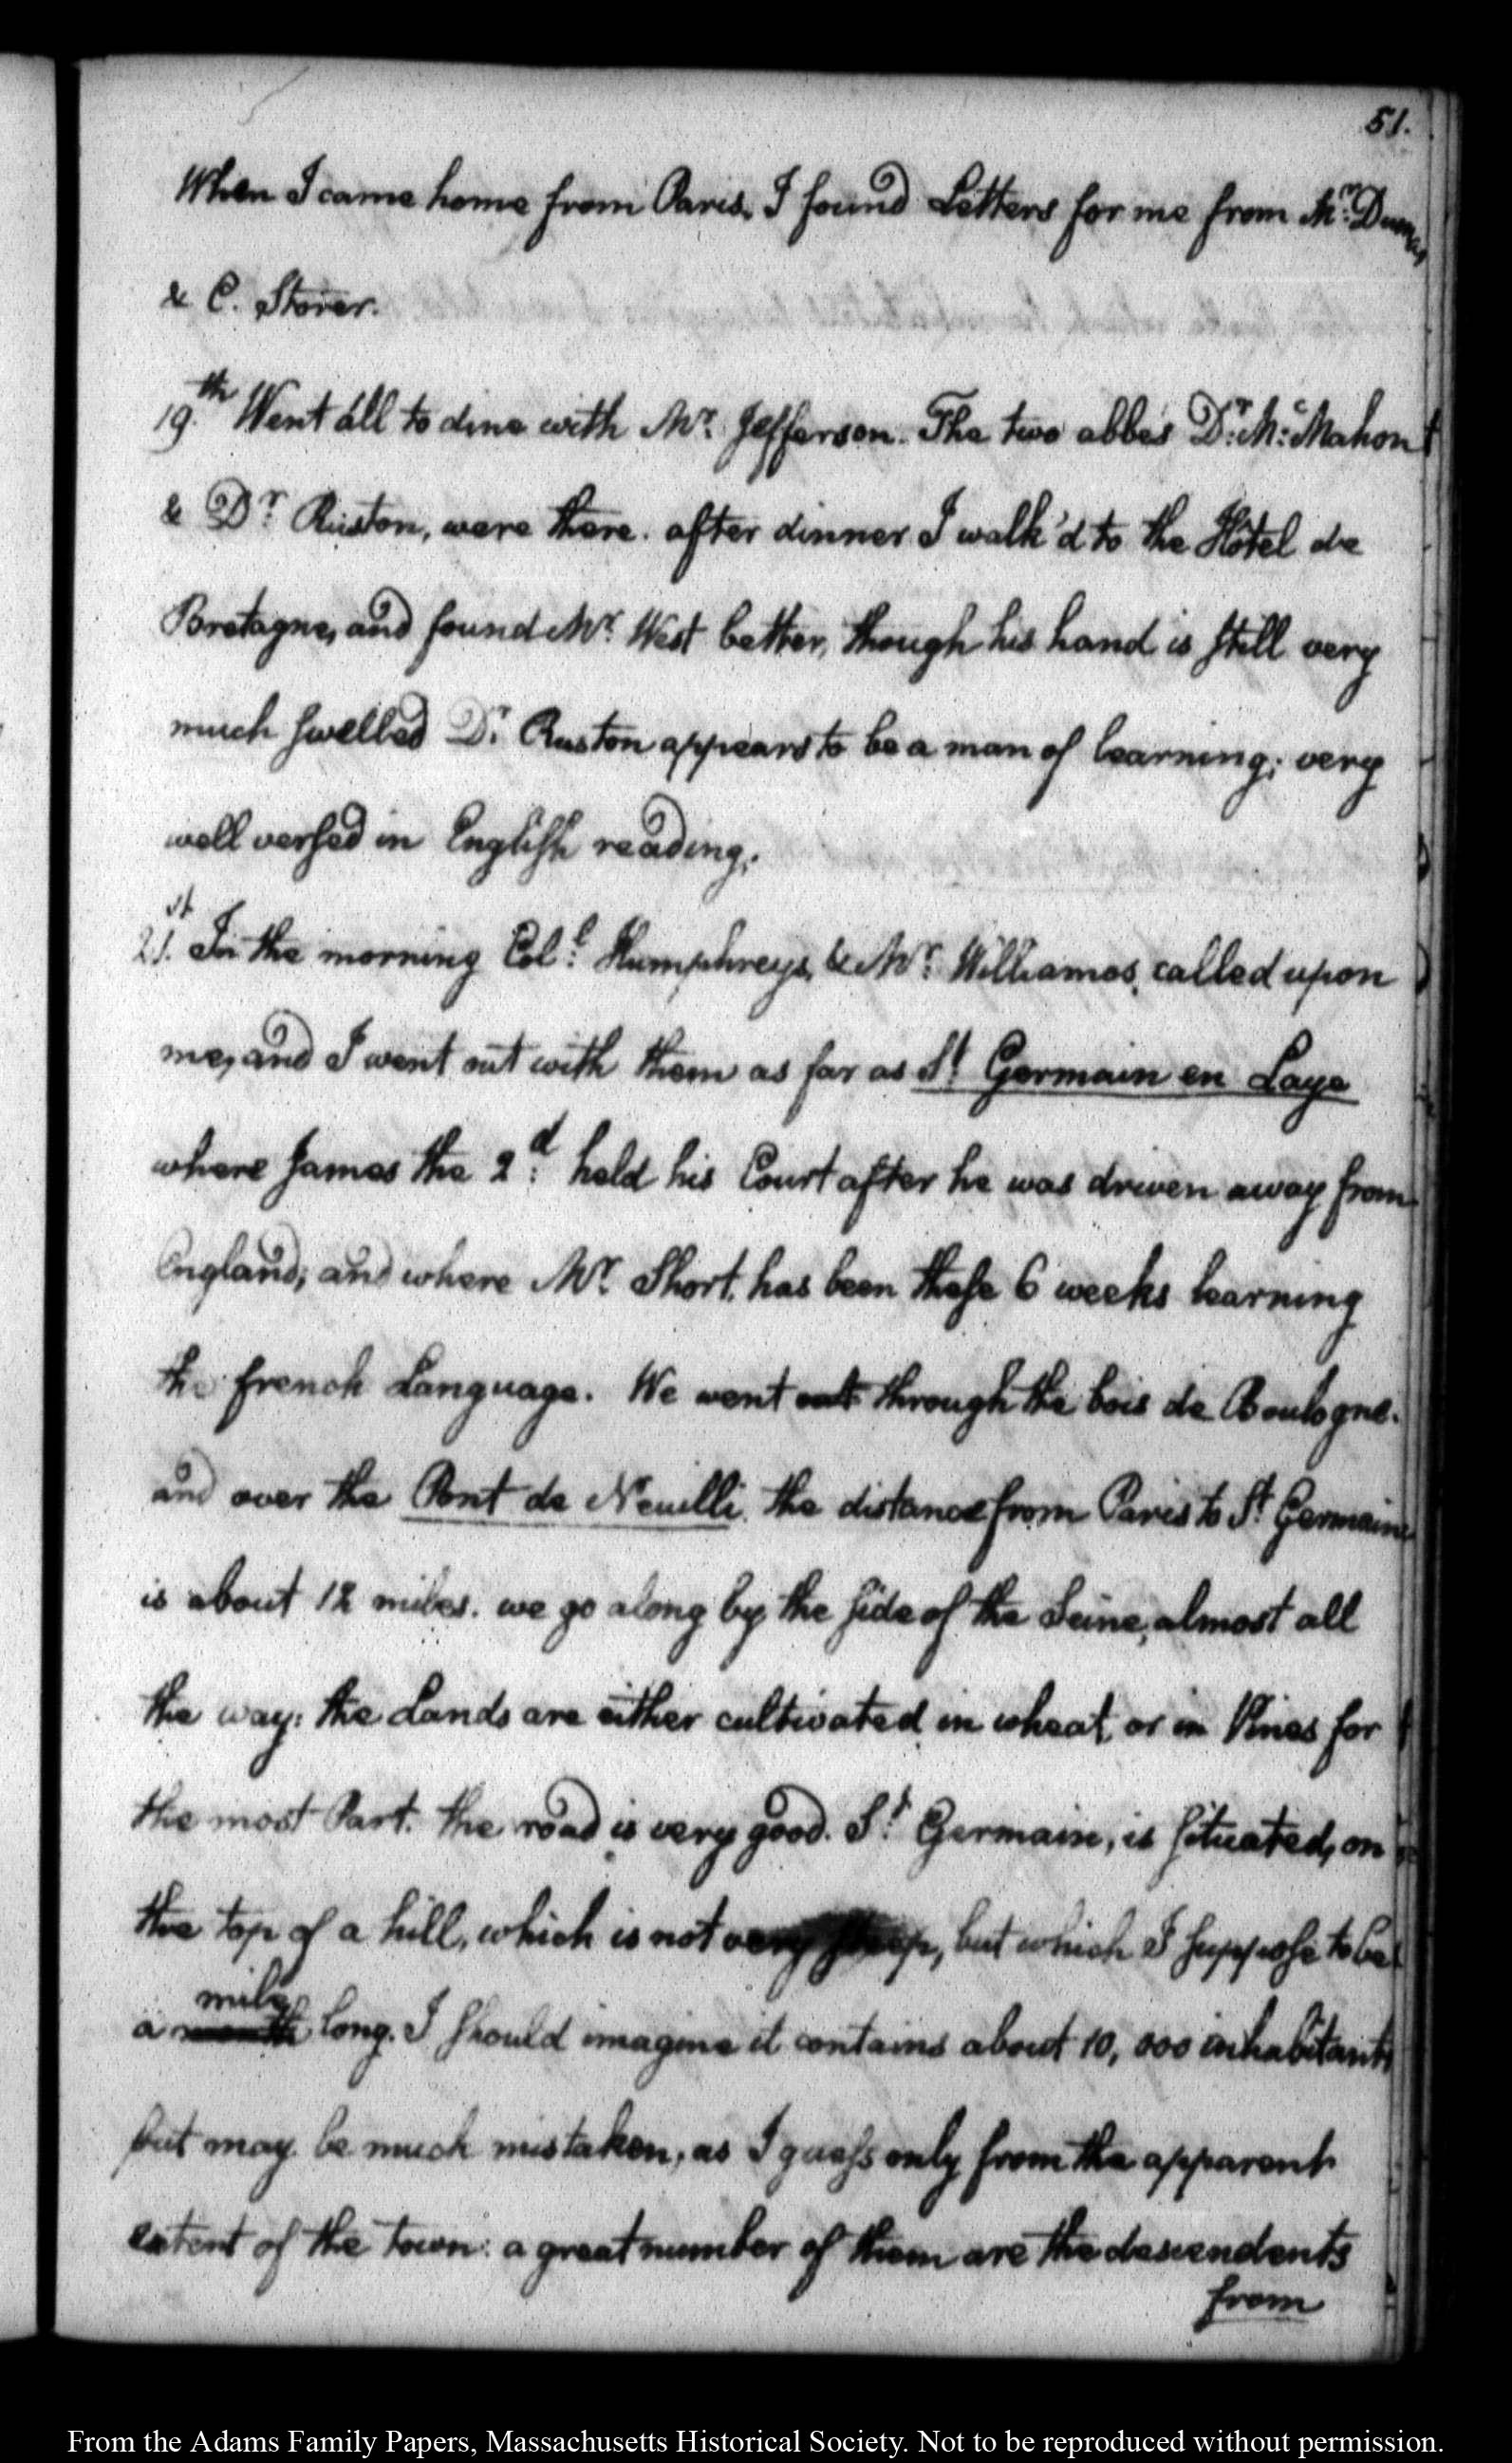 51.
When I came home from Paris, I found Letters for me from Mr. Dumas
& C. Storer.
19th. Went all to dine with Mr. Jefferson. The two abbés Dr. McMahon
& Dr. Ruston, were there. after dinner I walk'd to the Hôtel de
Bretagne, and found Mr. West better, though his hand is still very
much swelled Dr. Ruston appears to be a man of learning; very
well versed in English reading.
21st. In the morning Coll. Humphreys, & Mr. Williamos, called upon
me, and I went out with them as far as St Germain en Laye
where James the 2d. held his Court after he was driven away from
England; and where Mr. Short, has been these 6 weeks learning
the french Language. We went out through the bois de Boulogne.
and over the Pont de Neuilli. the distance from Paris to St Germain
is about 12 miles. we go along by the side of the Seine, almost all
the way: the Lands are either cultivated in wheat, or in Vines for
the most Part. the road is very good. St. Germain, is situated, on
the top of a hill, which is not very steep, but which I suppose to be
mile
a long. I should imagine it contains about 10,000 inhabitants
but may be much mistaken, as I guess only from the apparent
extent of the town: a great number of them are the descendents
from
From the Adams Family Papers, Massachusetts Historical Society. Not to be reproduced without permission.